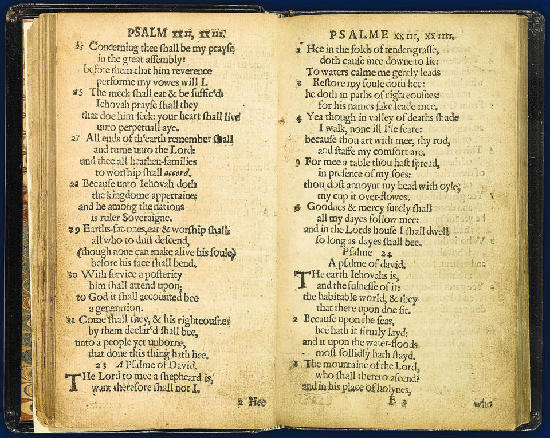 PSALM xxii, xxiii.
25 Concerning thee shall be my prayse
in the great assembly:
before them that him reverence
performe my vowes will I.
26 The meek shall eat & be suffic'd:
Iehovah prayse shall they
that doe him seek: your heart shall live
unto perpetuall aye.
27 All ends of th'earth remember shall
and turne unto the Lord:
and thee all heathen-families
to worship shall accord.
28 Because unto Iehovah doth
the kingdome appertaine:
and he among the nations
is ruler Soveraigne.
29 Earths-fat-ones, eat & worship shall:
all who to dust descend,
(though none can make alive his soule)
before his face shall bend.
30 With service a posterity
him shall attend upon;
to God it shall accounted bee
a generation.
31 Come shall they, & his righteousnes
by them declar'd shall bee,
unto a people yet unborne,
that done this thing hath hee.
23 A Psalme of David.
THe Lord to mee a shepheard is,
want therefore shall not I.
2 Hee
PSALME xxiii, xxiiii.
2 Hee in the folds of tender-grasse,
doth cause mee downe to lie:
To waters calme me gently leads
3 Restore my soule doth hee:
he doth in paths of righteousnes:
for his names sake leade mee.
4 Yea though in valley of deaths shade
I walk, none ill I'le feare:
because thou art with mee, thy rod,
and staffe my comfort are.
5 For mee a table thou hast spread,
in presence of my foes:
thou dost annoynt my head with oyle,
my cup it over-flowes.
6 Goodnes & mercy surely shall
all my dayes follow mee:
and in the Lords house I shall dwell
so long as dayes shall bee.
Psalme 24
A psalme of david.
THe earth Iehovahs is,
and the fulnesse of it:
the habitable world, & they
that there upon doe sit.
2 Because upon the seas,
hee hath it firmly layd:
and it upon the water-floods
most sollidly hath stayd.
3 The mountaine of the Lord,
who shall thereto ascend?
and in his place of holynes,
who